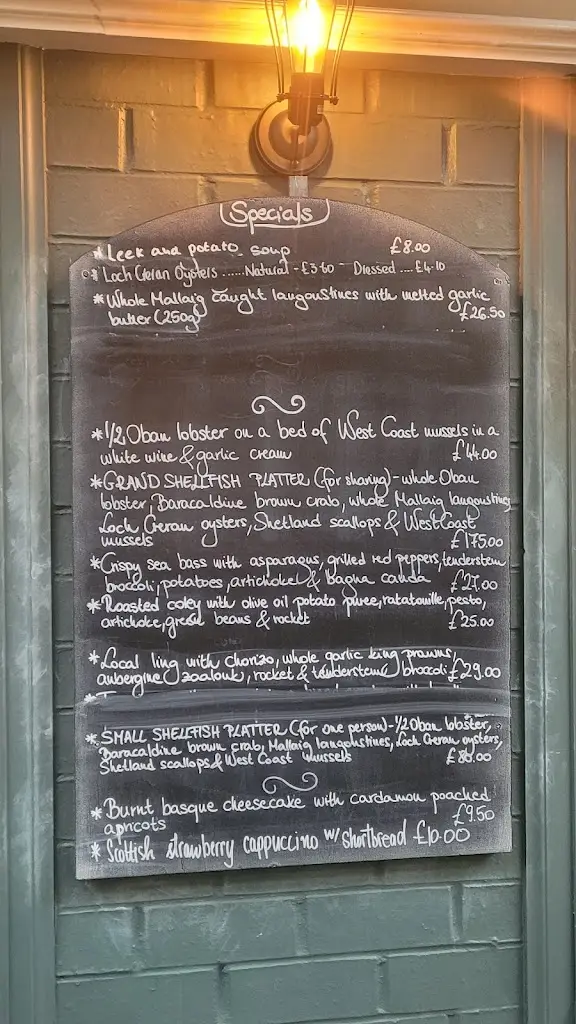 Specials
*Leek and potato soup £8.00
* Loch Creran Oysters ...... Natural - £3.60 Dressed .... £4.10
*Whole Mallaig caught langoustines with melted garlic
butter (250g) £26.50
*1/2 Oban lobster on a bed of West Coast mussels in a
white wine & garlic cream £44.00
*GRAND SHELLFISH PLATTER (for sharing) - whole Oban
lobster, Baracaldine brown crab, whole Mallaig langoustines,
Loch Creran oysters, Shetland scallops & West Coast
mussels £175.00
*Crispy sea bass with asparagus, grilled red peppers, tenderstem
broccoli, potatoes, artichoke & bagna cauda £27.00
*Roasted coley with olive oil potato puree, ratatouille, pesto,
artichoke, green beans & rocket £25.00
*Local ling with chorizo, whole garlic king prawns,
aubergine zaalouk, rocket & tenderstem broccoli £29.00
* SMALL SHELLFISH PLATTER (for one person) - 1/2 Oban lobster,
Baracaldine brown crab, Mallaig langoustines, Loch Creran oysters,
Shetland scallops & West Coast mussels
* Burnt basque cheesecake with cardamon poached
apricots £9.50
* Scottish strawberry cappuccino w/ shortbread £10.00